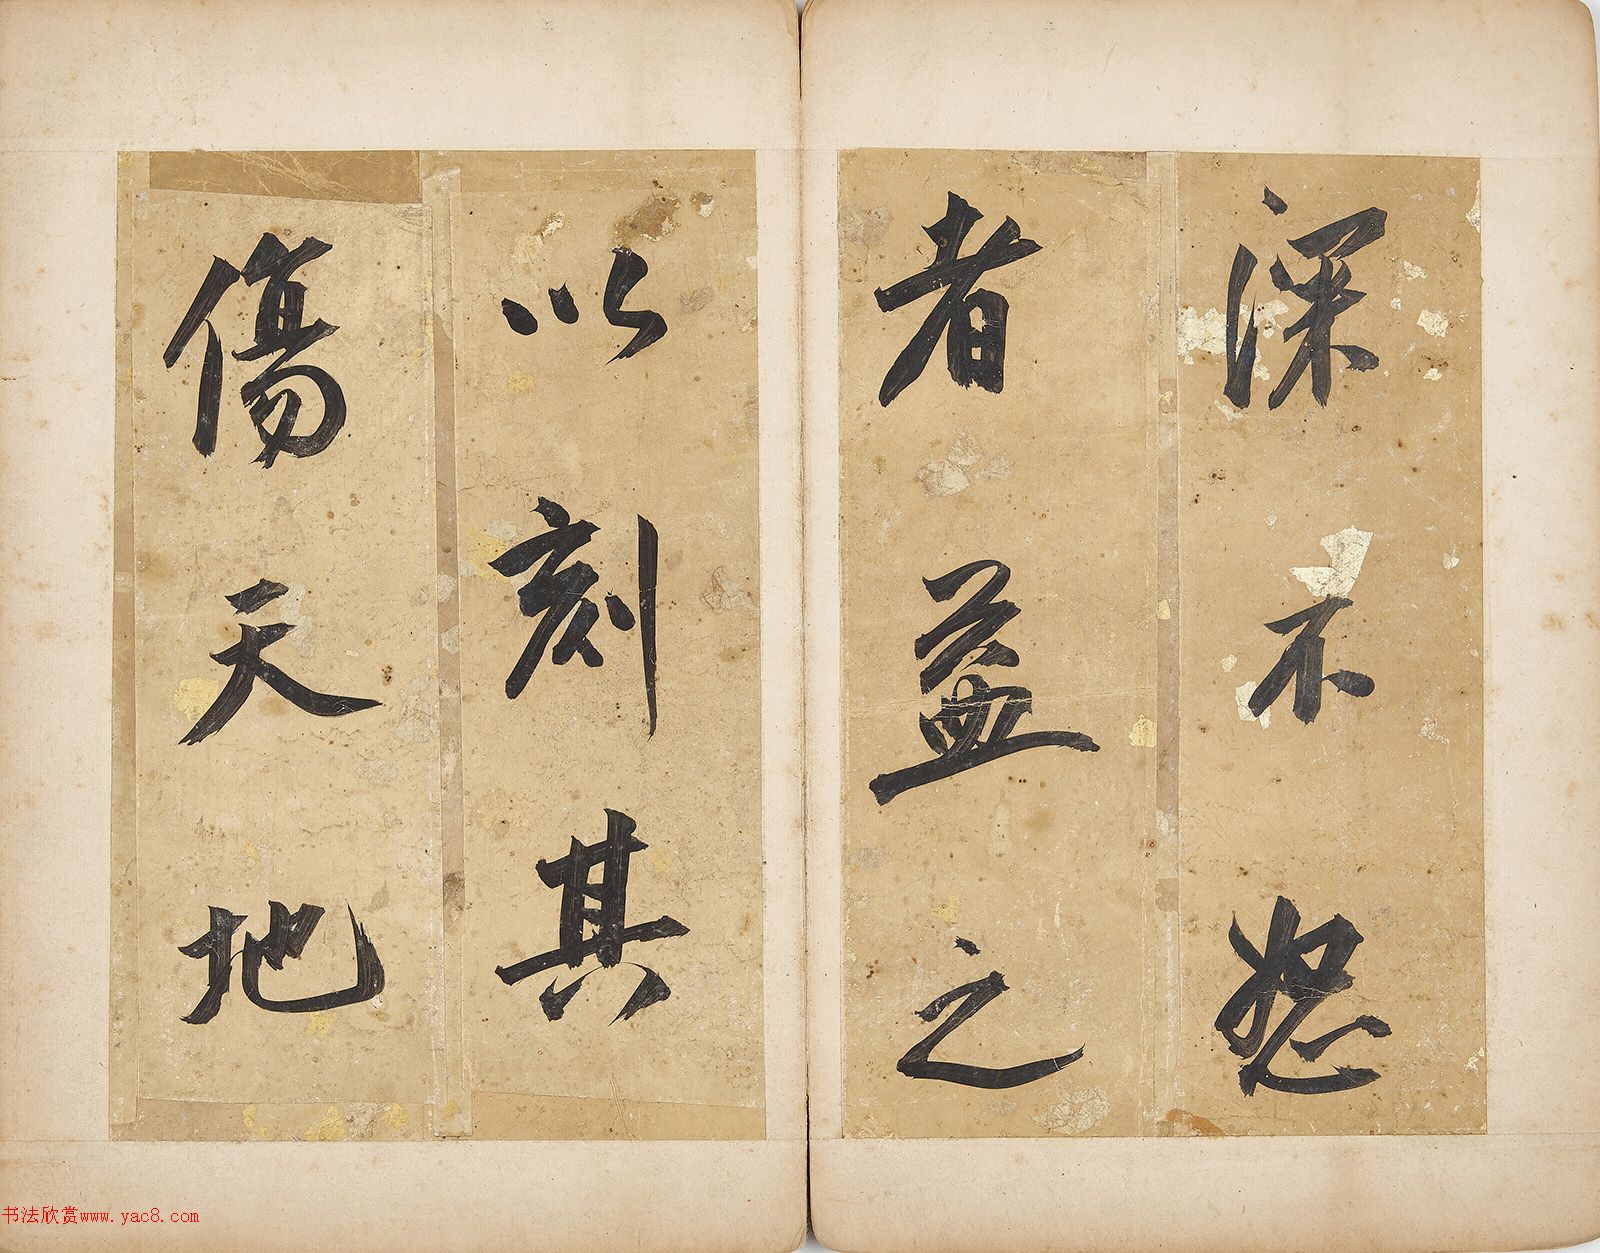 深不恕
者益之
以刻其
傷天地
书法欣赏www.yac8.com